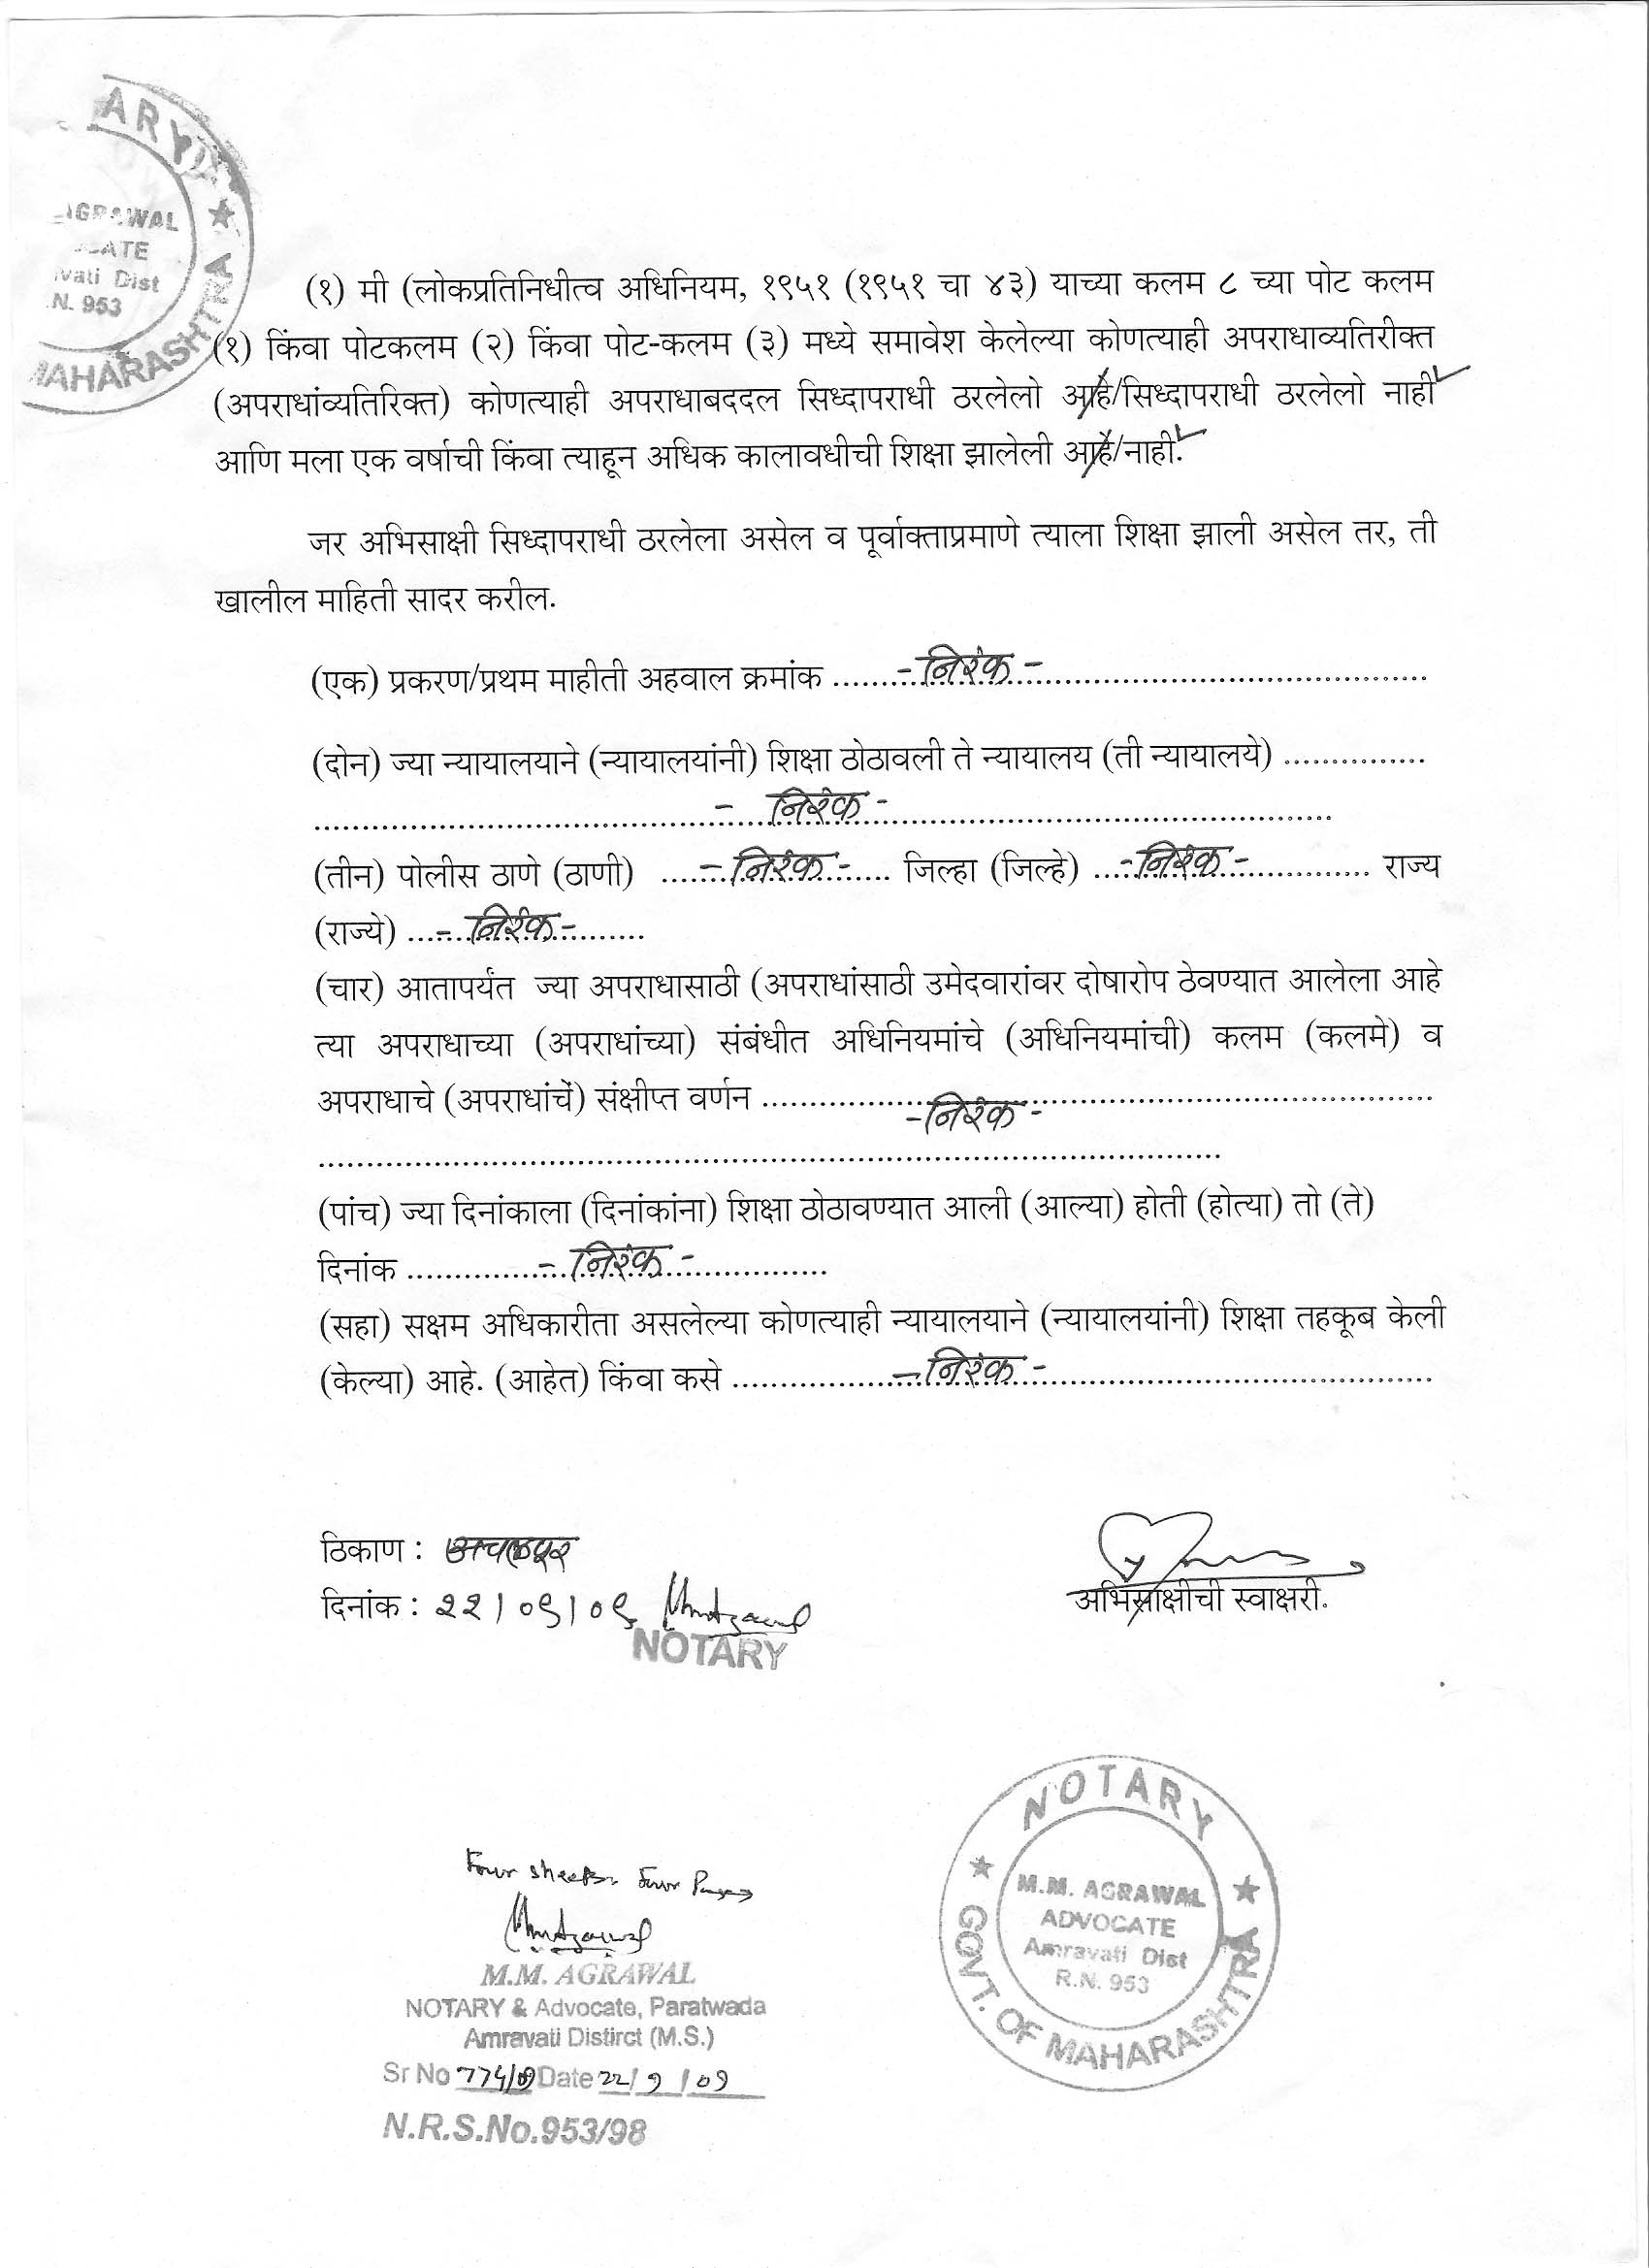 ARY
AGRAWAL
CATE
vati Dist
.N. 953
MAHARASHTRA
(१) मी (लोकप्रतिनिधीत्व अधिनियम, १९५१ (१९५१ चा ४३) याच्या कलम ८ च्या पोट कलम
(१) किंवा पोटकलम (२) किंवा पोट-कलम (३) मध्ये समावेश केलेल्या कोणत्याही अपराधाव्यतिरीक्त
(अपराधांव्यतिरिक्त) कोणत्याही अपराधाबददल सिध्दापराधी ठरलेलो आहे/सिध्दापराधी ठरलेलो नाही
आणि मला एक वर्षाची किंवा त्याहून अधिक कालावधीची शिक्षा झालेली आहे/नाही.
जर अभिसाक्षी सिध्दापराधी ठरलेला असेल व पूर्वाक्ताप्रमाणे त्याला शिक्षा झाली असेल तर, ती
खालील माहिती सादर करील.
(एक) प्रकरण/प्रथम माहीती अहवाल क्रमांक ........-निरंक-........
(दोन) ज्या न्यायालयाने (न्यायालयांनी) शिक्षा ठोठावली ते न्यायालय (ती न्यायालये) ...............
........- निरंक -........
(तीन) पोलीस ठाणे (ठाणी) ......- निरंक -...... जिल्हा (जिल्हे) ....-निरंक-........ राज्य
(राज्ये) ....- निरंक-.......
(चार) आतापर्यंत ज्या अपराधासाठी (अपराधांसाठी उमेदवारांवर दोषारोप ठेवण्यात आलेला आहे
त्या अपराधाच्या (अपराधांच्या) संबंधीत अधिनियमांचे (अधिनियमांची) कलम (कलमे) व
अपराधाचे (अपराधांचें) संक्षीप्त वर्णन ........................
-निरंक-
........................
(पांच) ज्या दिनांकाला (दिनांकांना) शिक्षा ठोठावण्यात आली (आल्या) होती (होत्या) तो (ते)
दिनांक ........- निरंक -........
(सहा) सक्षम अधिकारीता असलेल्या कोणत्याही न्यायालयाने (न्यायालयांनी) शिक्षा तहकूब केली
(केल्या) आहे. (आहेत) किंवा कसे ........-निरंक-........
ठिकाण : अचलपूर
दिनांक : २२/०९/०९
अभिसाक्षीची स्वाक्षरी.
NOTARY
Four sheets Four Pages
M.M. AGRAWAL
NOTARY & Advocate, Paratwada
Amravati Distirct (M.S.)
Sr No 774/09 Date 22/9/09
N.R.S.No.953/98
NOTARY
M.M. AGRAWAL
ADVOCATE
Amravati Dist
R.N. 953
GOVT. OF MAHARASHTRA